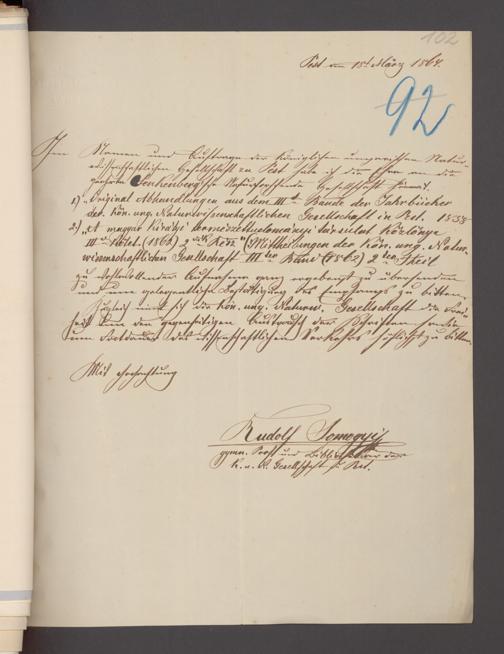 102
Pest am 15t März 1864.
92
Im Namen und Auftrage der königlichen ungarischen Natur-
wissenschaftlichen Gesellschaft zu Pest habe ich die Ehre an die
geehrte Senkenberg'sche Naturforschende Gesellschaft hiemit
1) "Original Abhandlungen aus dem IIIten Bande der Jahrbücher
der kön. ung. Naturwissenschaftlichen Gesellschaft in Pest. 1858
2.) "A magyar királyi természettudományi társulat Közlönye
III Kötet. (1862) 2dik Rész" (Mittheilungen der kön. ung. Natur-
wissenschaftlichen Gesellschaft IIIter Band (1862) 2ter Theil
zu übersenden
und um gelegentliche Bestätigung des Empfangs zu bitten.
Zugleich die kön. ung. Naturw. Gesellschaft die Frei-
heit um den gegenseitigen Austausch der Schriften
um des wissenschaftlichen Verkehrs höflichst zu bitten.
Mit Hochachtung
Rudolf Somogyi
gymn. Prof. und Bibliothekar der
k. u. N. Gesellschaft z. Pest.